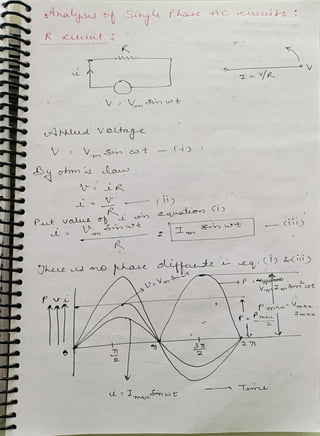 Analysis of Single Phase AC circuits :
R circuit :
R
i
V = Vm sin ωt
V
I = V/R
Applied Voltage
V = Vm sin ωt — (i) :
By ohm's law
V = iR
i = V/R — (ii)
Put value of i in equation (i)
i = Vm sin ωt / R = Im sin ωt — (iii)
There is no phase differente in eq. (i) & (iii)
P V i
V = Vm sin ωt
P =
Vm Im sin² ωt
P max = Vmax Imax
P = Pmax / 2
0 π/2 π 3π/2 2π
i = Imax sin ωt → Time